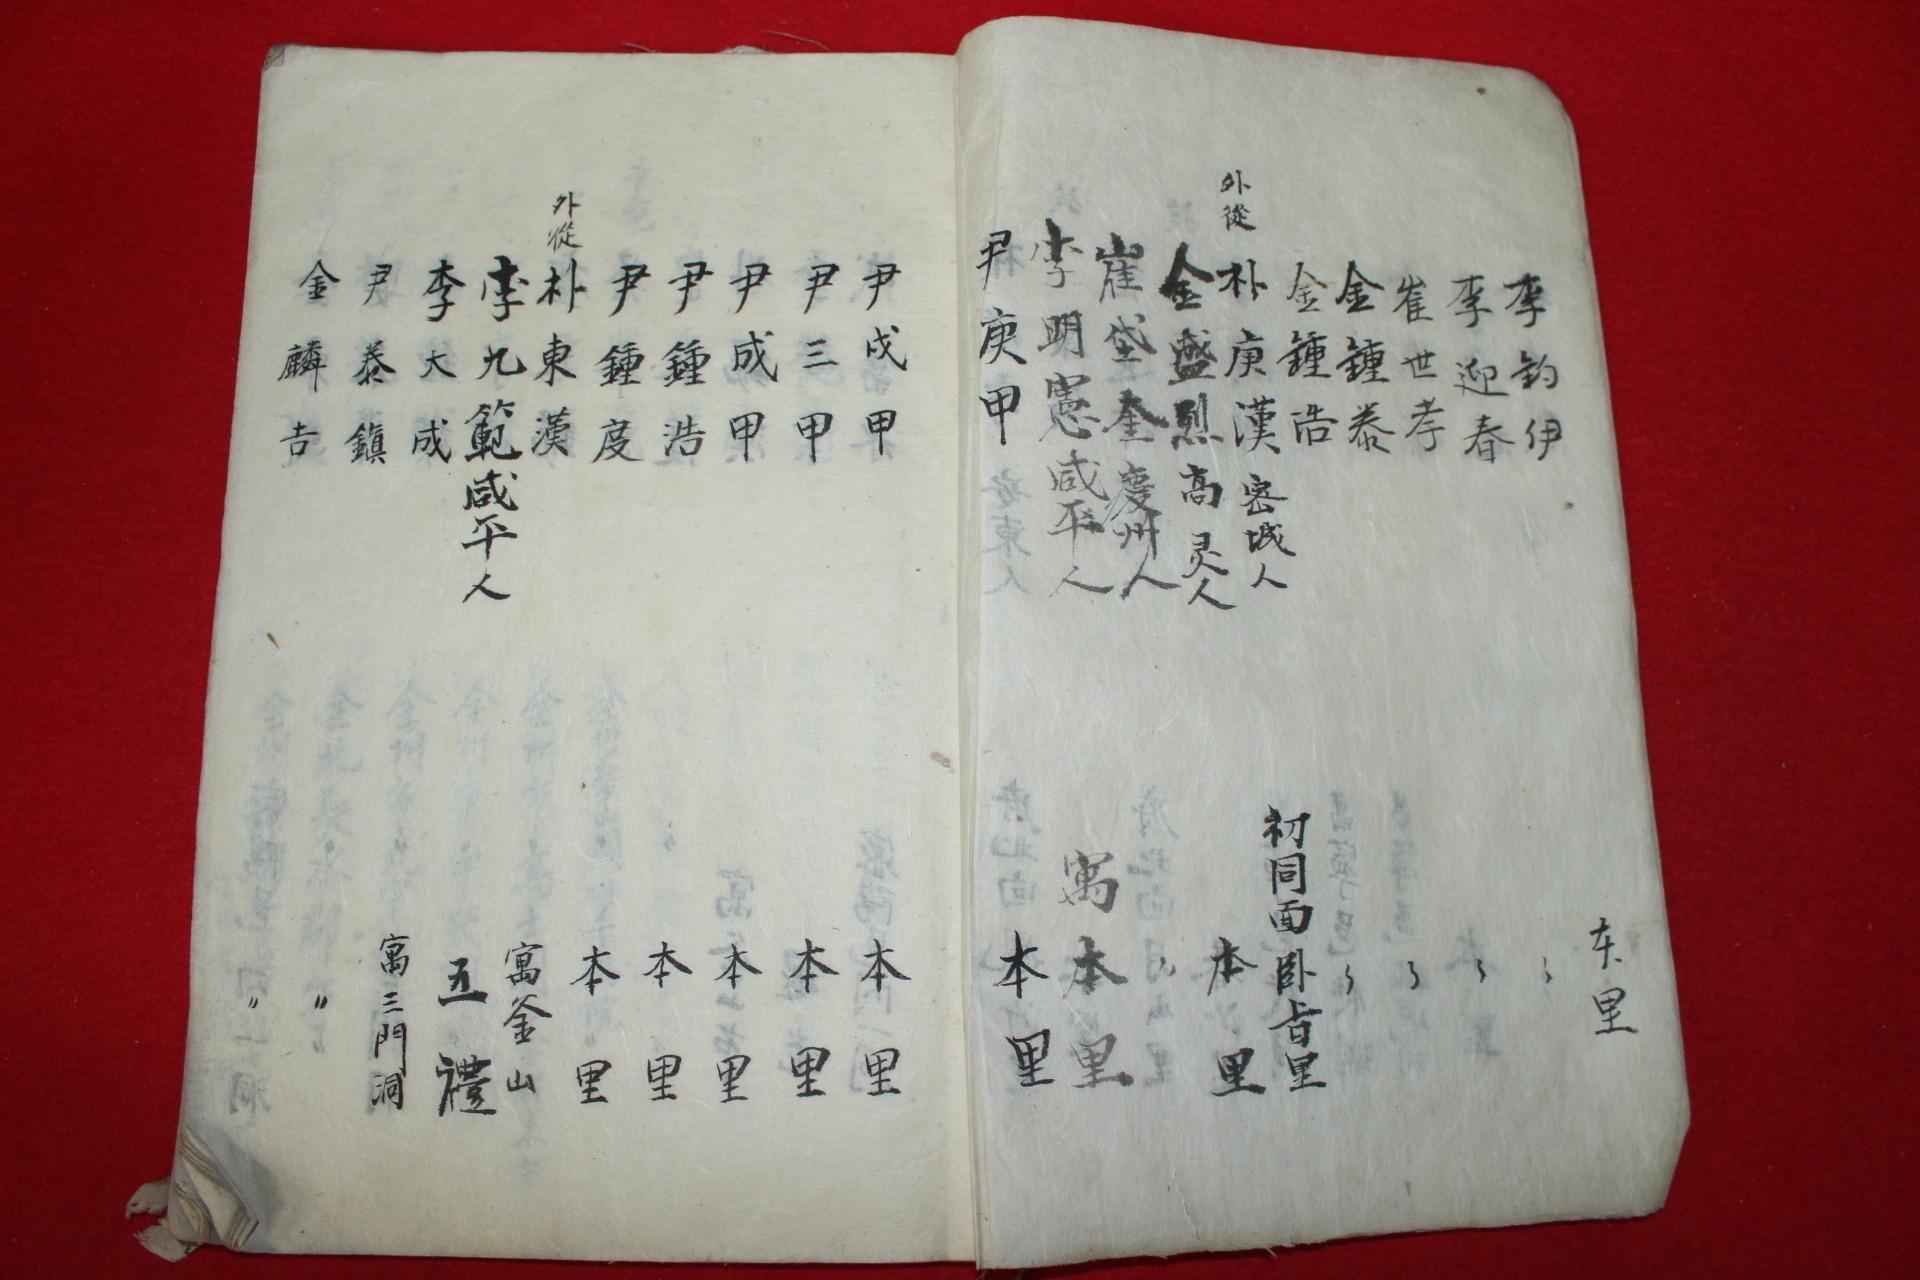 李鈞伊 本里
李迎春 〻
崔世孝 〻
金鍾泰 〻
金鍾浩 〻
外從 朴庚漢 密城人 初同面卧旨里
金盛烈 高灵人 本里
崔垈奎 慶州人 〻
李明憲 咸平人 寓本里
尹庚甲 本里
尹戊甲 本里
尹三甲 本里
尹成甲 本里
尹鍾浩 本里
尹鍾度 本里
外從 朴東漢 寓釜山
李九範 咸平人 五禮
李大成 寓三門洞
尹泰鎭 〃
金麟吉 〃